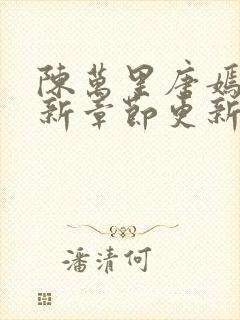 陳萬里唐嫣
新章節更新
潘清何